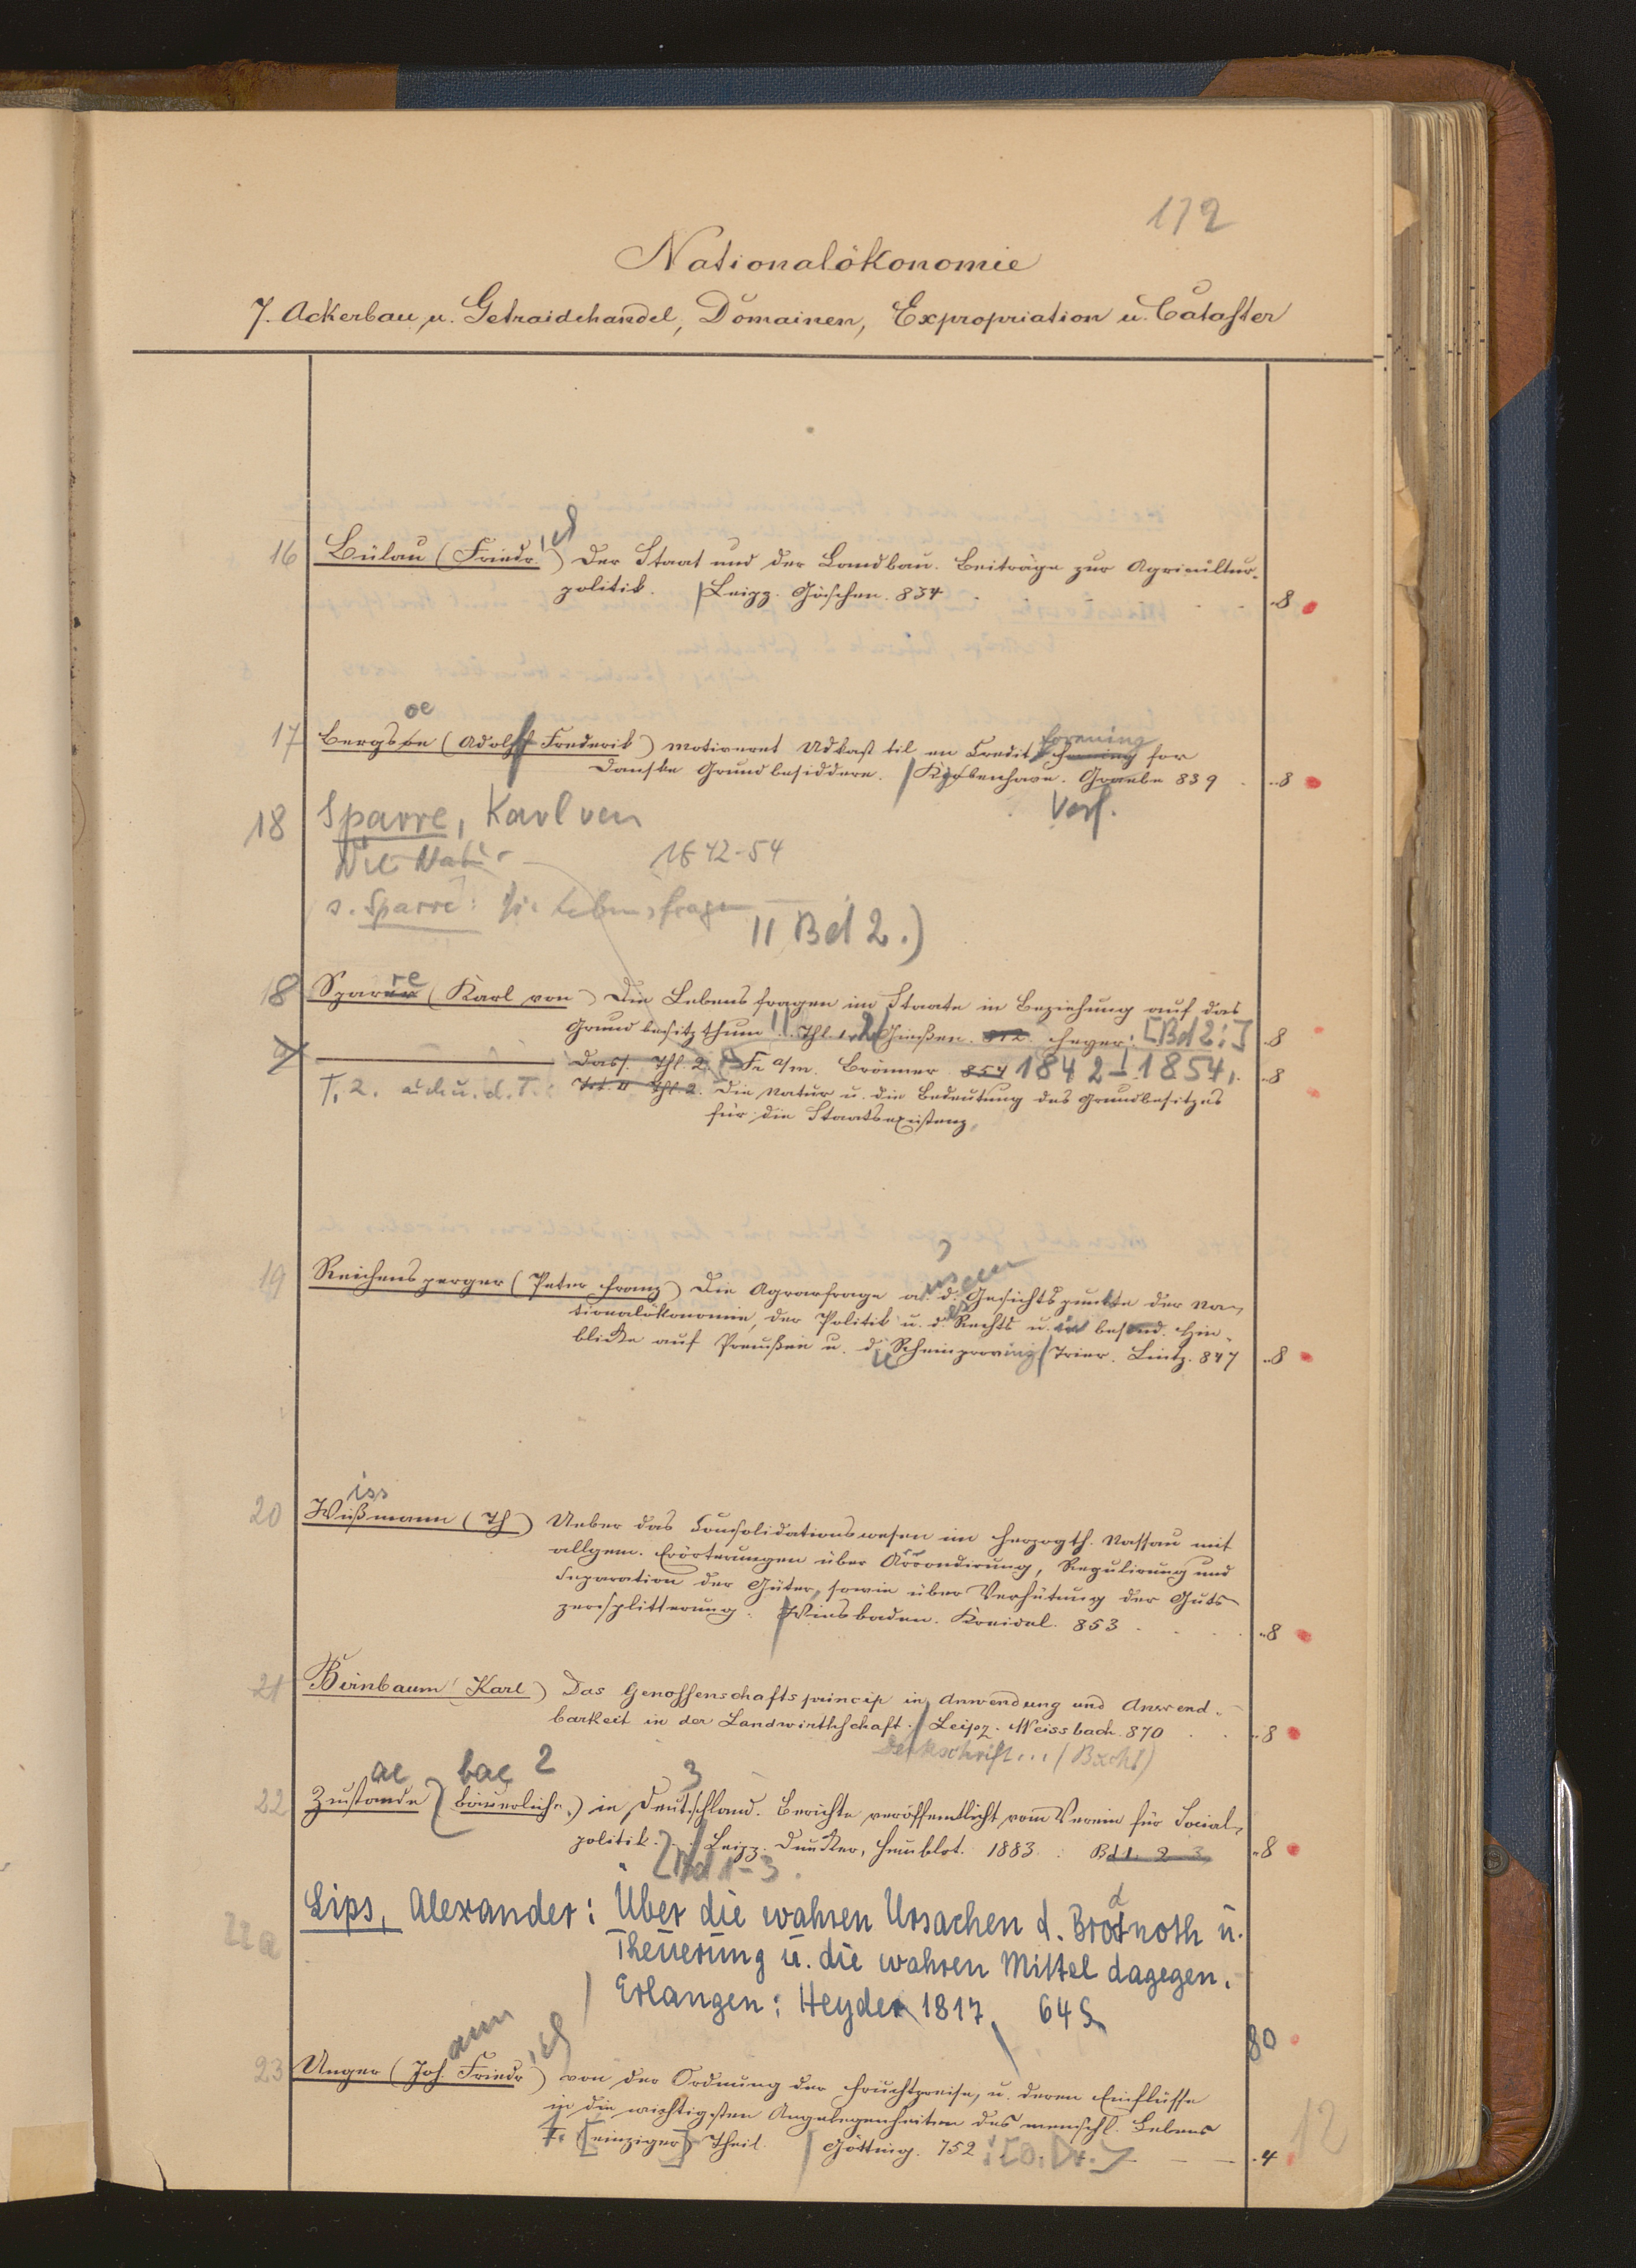 112
Nationalökonomie
7. Ackerbau u. Getraidehandel, Domainen, Expropriation u. Cataster
16 Bülau (Friedr.ich) Der Staat und der Landbau. Beiträge zur Agricultur-
politik. Leipz. Göschen. 834 8
oe
17 Bergsøe (Adolph Frederik) Motiveret Udkast til en Creditforening for
Danske Grundbesiddere. Kjøbenhavn. Graebe 839 8
Verf.
18 Sparre, Karl von
Die Natur 1842-54
s. Sparre: Die Lebensfragen
11 Bd 2.)
18 Sparre (Karl von) Die Lebensfragen im Staate in Beziehung auf das
Grundbesitzthum Thl. 1. Gießen. 842 Heyer: [Bd 2:] 8
Dass. Thl. 2. Fr a/m. Brönner 854 1842-1854. 8
T. 2. auch u. d. T.: Thl. 2. Die Natur u. die Bedeutung des Grundbesitzes
für die Staatsexistenz.
19 Reichensperger (Peter Franz) Die Agrarfrage aus dem Gesichtspunkte der Na-
tionalökonomie, der Politik u. des Rechts u. in besond. Hin-
blicke auf Preußen u. die Rheinprovinz Trier. Lintz. 847 8
iss
20 Wißmann (Th) Ueber das Consolidationswesen im Herzogth. Nassau mit
allgem. Erörterungen über Arrondirung, Regulirung und
Separation der Güter, sowie über Verhütung der Guts-
zersplitterung. Wiesbaden. Kreidel. 853 8
21 Birnbaum (Karl) Das Genossenschaftsprincip in Anwendung und Anwend-
barkeit in der Landwirthschaft. Leipz. Weissbach. 870 8
Denkschrift...
ae bae 2 3
22 Zustände (bäuerliche) in Deutschland. Berichte veröffentlicht vom Verein für Social-
politik. Leipz. Duncker, Humblot. 1883. Bd 1. 2. 3. 8
[Bd 1-3.
22a Lips, Alexander: Über die wahren Ursachen d. Brodnoth u.
Theuerung u. die wahren Mittel dagegen.
Erlangen: Heyder 1817. 64 S.
80
ann ich
23 Unger (Joh. Friedr) von der Ordnung der Fruchtpreise, u. deren Einflüsse
in die wichtigsten Angelegenheiten des menschl. Lebens
I. [einziger] Theil. Götting. 752: [O. Dr.] 4
12